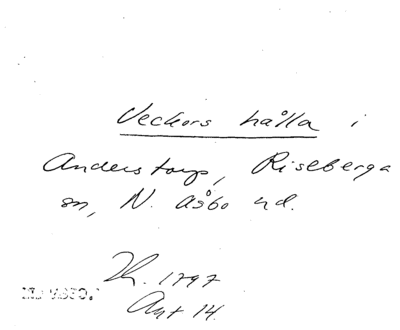 Veckors hålla i
Anderstorp, Riseberga
sn, N. Åsbo hd.
Th. 1797
Akt 14.